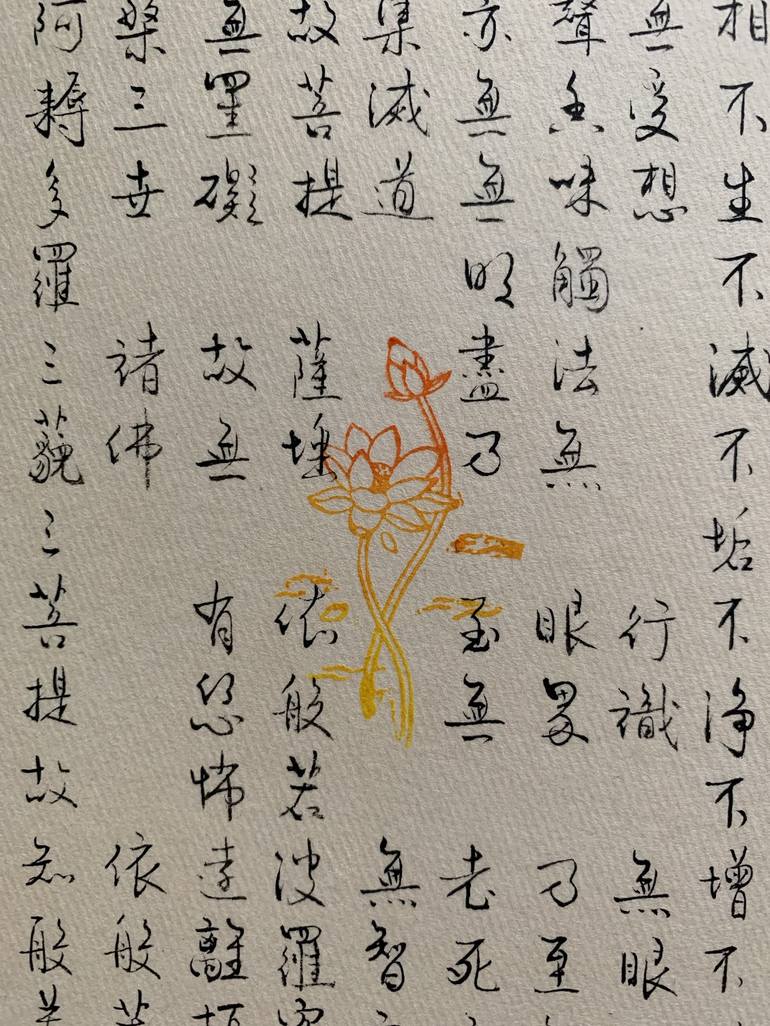 相不生不滅不垢不净不增不
無受想行識無眼
聲香味觸法無眼界乃至
亦無無明盡乃至無老死
集滅道無智
故菩提薩埵依般若波羅蜜
無罣礙故無有恐怖遠離
槃三世諸佛依般若
阿耨多羅三藐三菩提故知般若